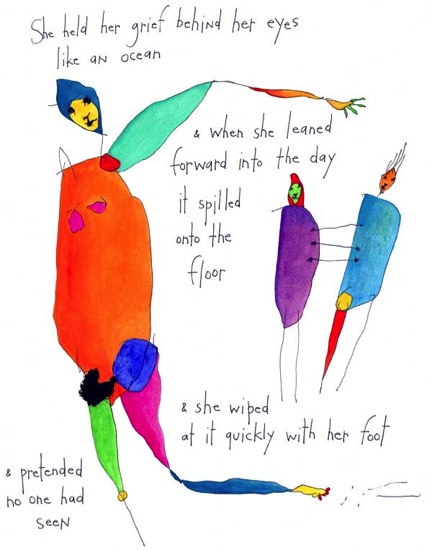 She held her grief behind her eyes
like an ocean
& when she leaned
forward into the day
it spilled
onto the
floor
& she wiped
at it quickly with her foot
& pretended
no one had
seen